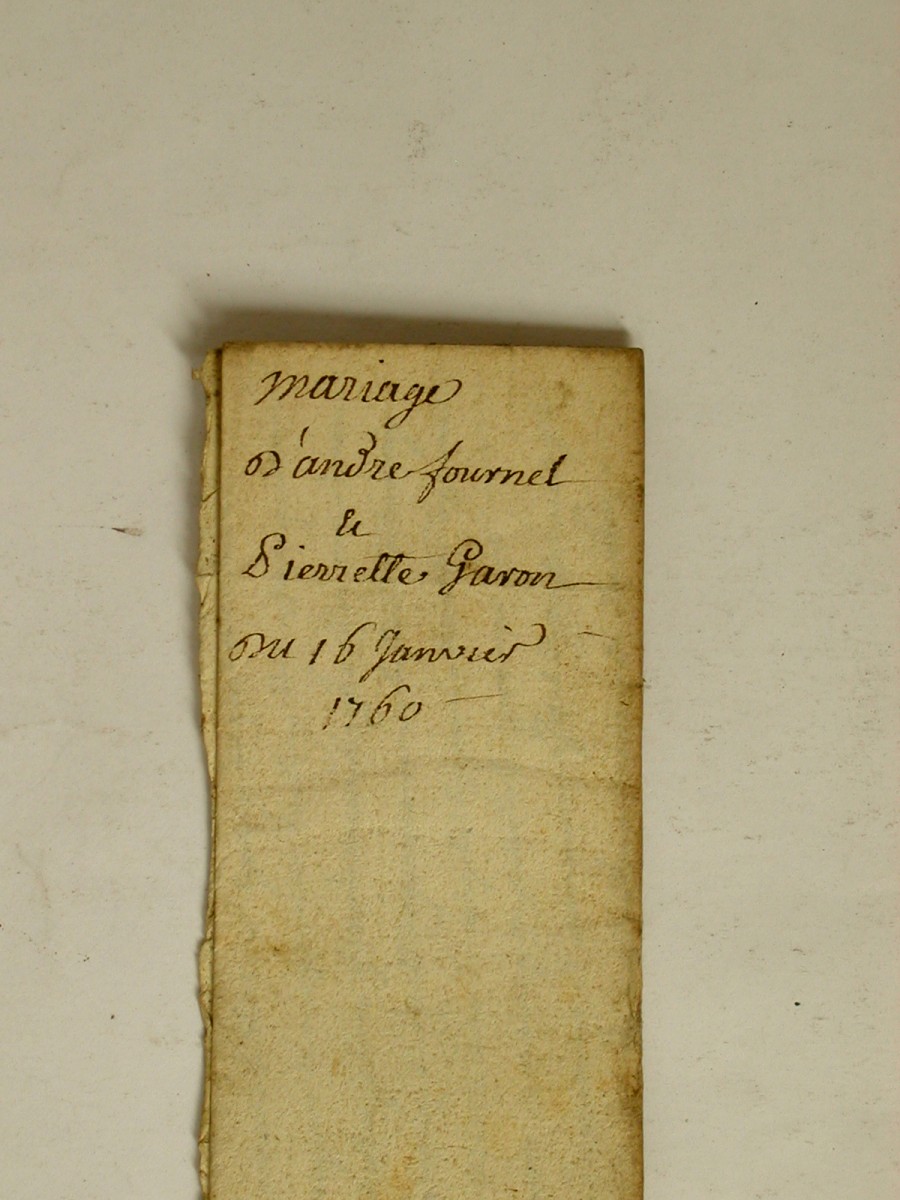 mariage
d'andre fournel
et
Pierrette Garon
du 16 Janvier
1760